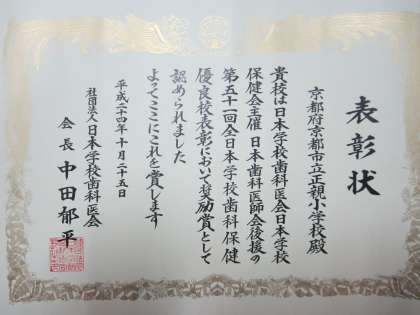 表彰状
京都府京都市立正親小学校殿
貴校は日本学校歯科医会日本学校
保健会主催 日本歯科医師会後援の
第五十一回全日本学校歯科保健
優良校表彰において奨励賞として
認められました
よってここにこれを賞します
平成二十四年十月二十五日
社団法人日本学校歯科医会
会長 中田郁平